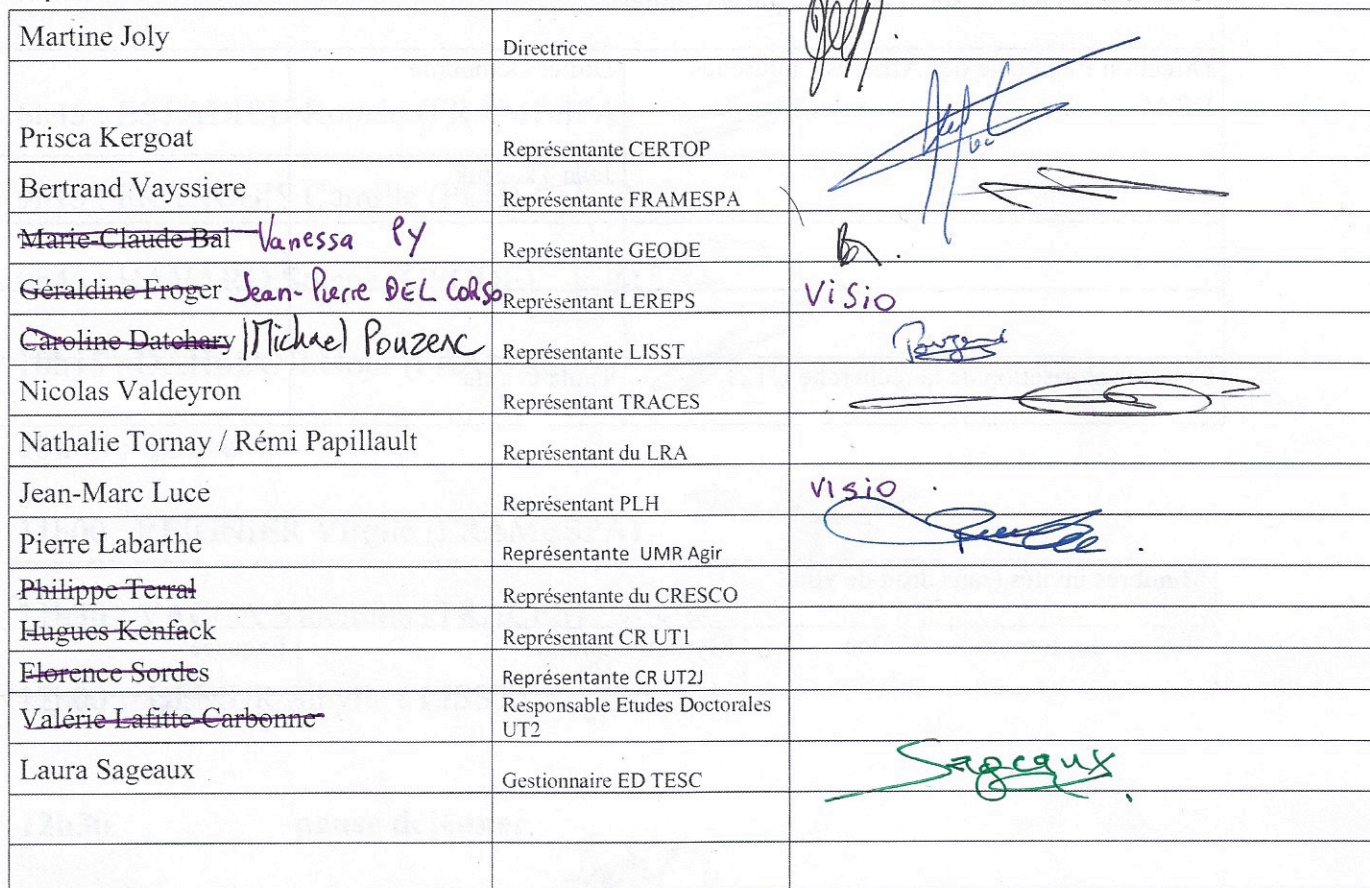 Martine Joly Directrice
Prisca Kergoat Représentante CERTOP
Bertrand Vayssiere Représentante FRAMESPA
Marie-Claude Bal Vanessa PY Représentante GEODE
Géraldine Froger Jean-Pierre DEL CORSO Représentant LEREPS Visio
Caroline Datchary Michael Pouzenc Représentante LISST Pouzenc
Nicolas Valdeyron Représentant TRACES
Nathalie Tornay / Rémi Papillault Représentant du LRA
Jean-Marc Luce Représentant PLH Visio .
Pierre Labarthe Représentante UMR Agir
Philippe Terral Représentante du CRESCO
Hugues Kenfack Représentant CR UT1
Florence Sordes Représentante CR UT2J
Valérie Lafitte-Carbonne Responsable Etudes Doctorales
UT2
Laura Sageaux Gestionnaire ED TESC Sageaux
12h30 pause déjeuner